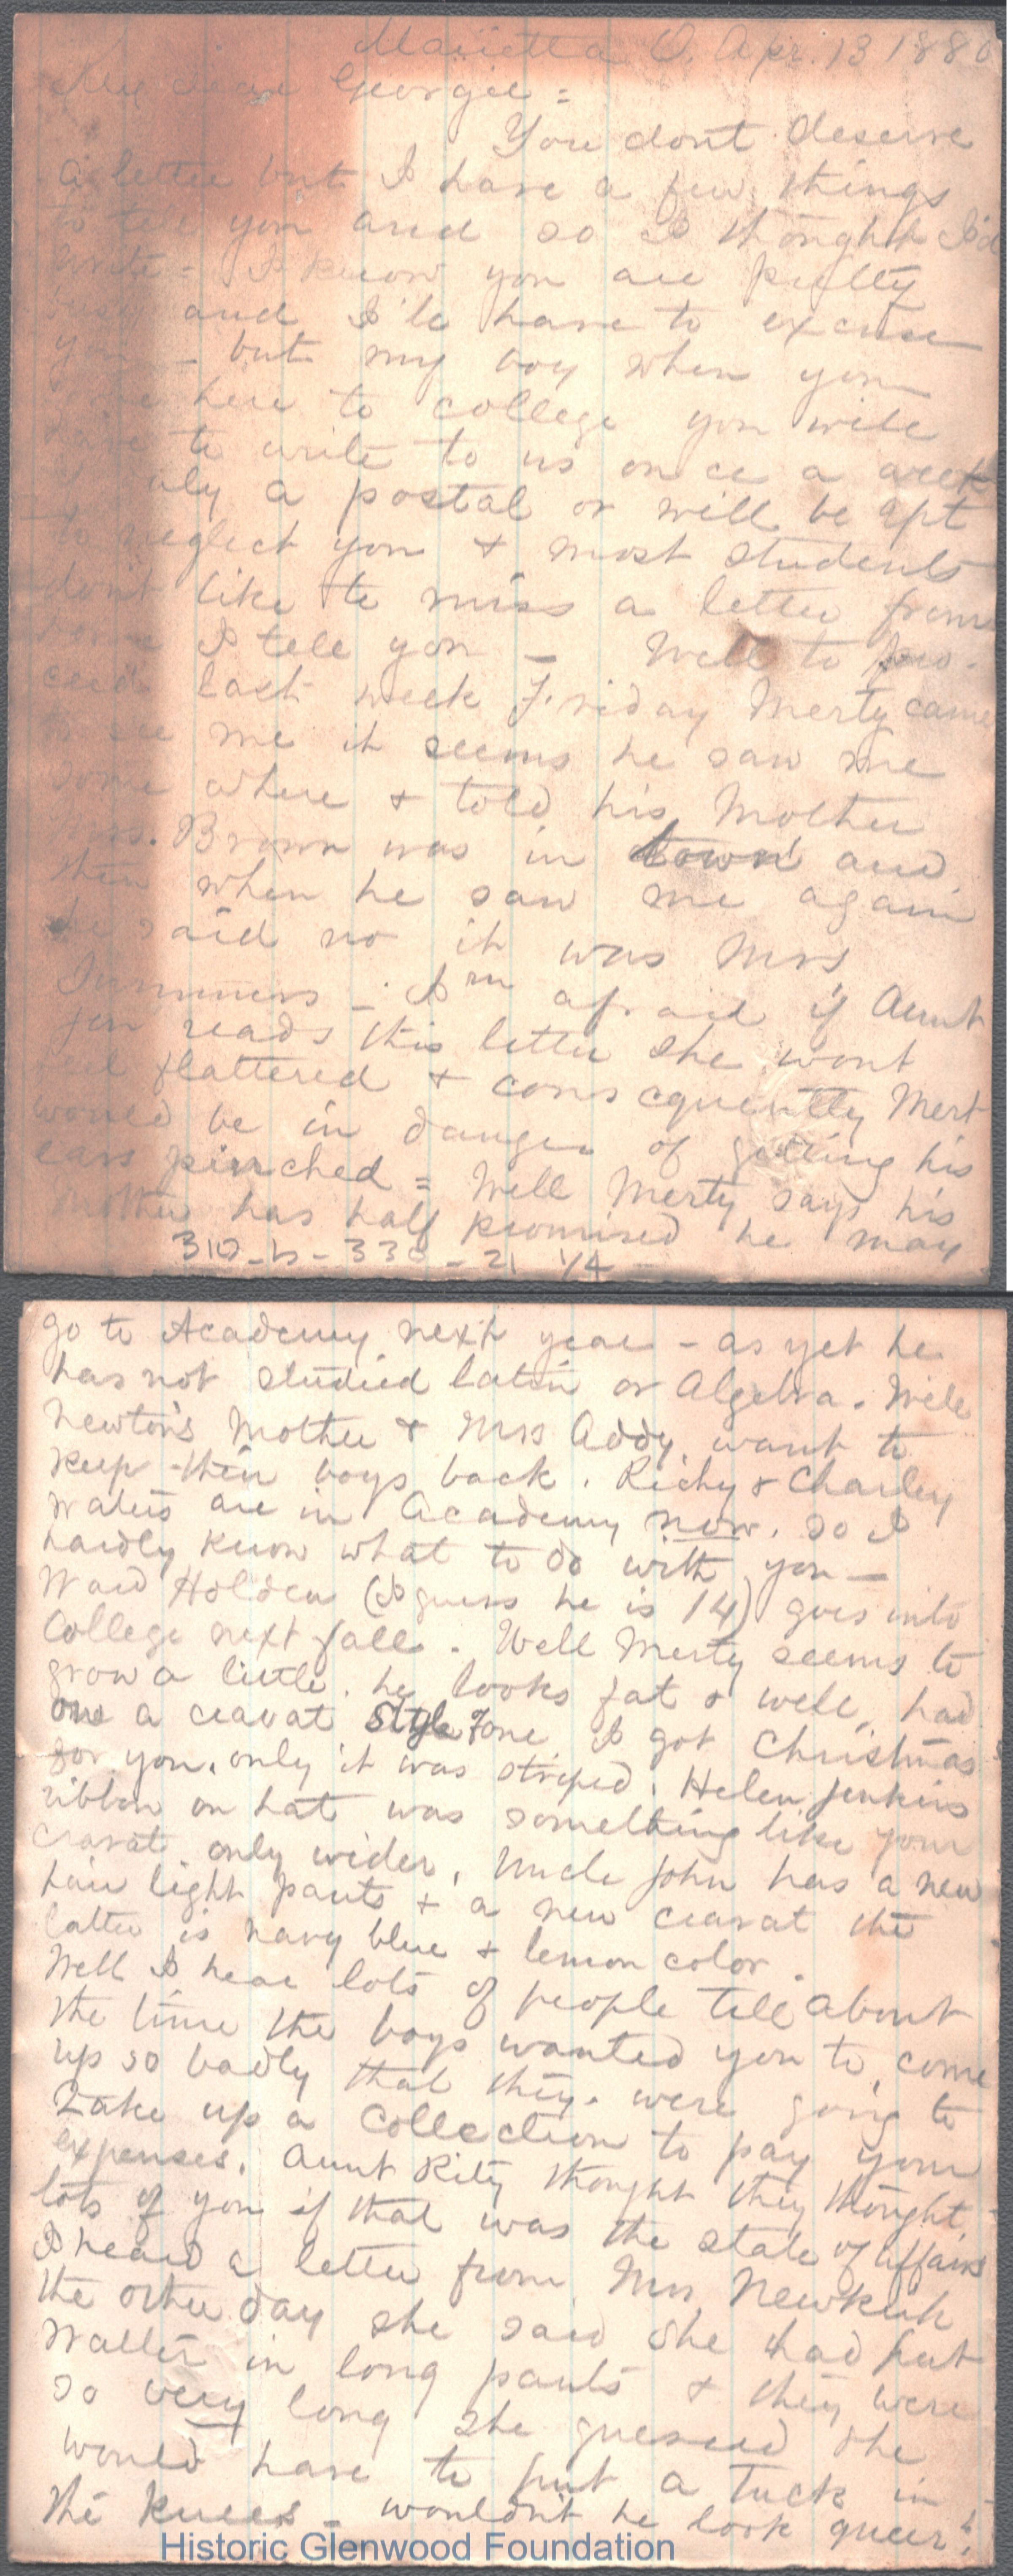 Marietta O. Apr. 13 1880
My dear Georgie =
You dont deserve
a letter but I have a few things
to tell you and so I thought I'd
write - I know you are pretty
busy and I'le have to excuse
you - but my boy when you
come here to college you will
have to write to us once a week
if only a postal or will be apt
to neglect you & most students
dont like to miss a letter from
home I tell you - Well to pro-
ceed last week Friday Merty came
to see me it seems he saw me
some where & told his Mother
Mrs. Brown was in town and
then when he saw me again
he said no it was Mrs
I'm afraid if Aunt
Jen reads this letter she wont
feel flattered & consequently Mert
would be in danger of getting his
ears pinched = Well Merty says his
Mother has half promised he may
310-b-330-21 1/4
go to Academy next year - as yet he
has not studied latin or Algebra. Well
Newton's Mother & Mrs Addy want to
keep their boys back. Richy & Charley
Waters are in Academy now. so I
hardly know what to do with you -
Ward Holden (I guess he is 14) goes into
College next fall. Well Merty seems to
grow a little. he looks fat & well, had
one a cravat style of one I got Christmas
for you. only it was striped. Helen Jenkins
ribbon on hat was something like your
cravat only wider. Uncle John has a new
pair light pants & a new cravat the
latter is navy blue & lemon color.
Well I hear lots of people tell about
the time the boys wanted you to come
up so badly that they were going to
take up a collection to pay your
expenses. Aunt Kity thought they thought
lots of you if that was the state of affairs
I heard a letter from Mrs Newkirk
the other day she said she had put
Walter in long pants & they were
so very long she guessed she
would have to put a tuck in
the knees - wouldn't he look queer?
Historic Glenwood Foundation